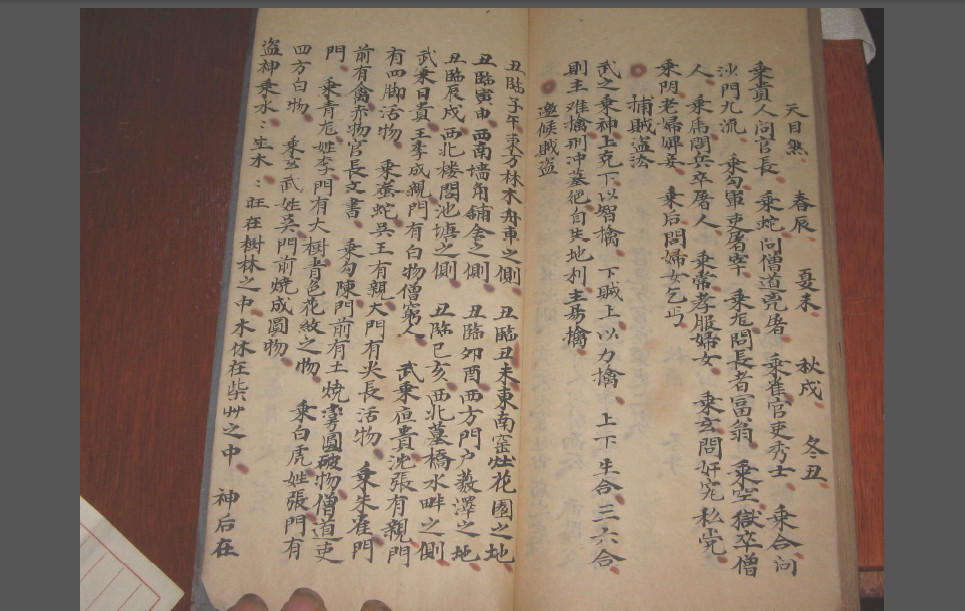 天目煞 春辰 夏未 秋戌 冬丑
乘貴人问官長 乘蛇问僧道亮屠 乘雀官吏秀士 乘合问
沙門九流 乘勾軍吏屠宰 乘龙問長者富翁 乘空獄卒僧
人 乘馬問兵卒屠人 乘常孝服婦女 乘玄問奸宄私党
乘阴老婦婢妾 乘后問婦女乞丐
捕賊盗法
武之乘神上克下以智擒 下贼上以力擒 上下生合三六合
則主难擒刑冲墓绝自失地利主易擒
邀候賊盗
丑臨子午東方林木舟車之側 丑臨丑未東南窑灶花園之地
丑臨寅申西南墙角舖舍之側 丑臨卯酉西方門户薮澤之地
丑臨辰戌西北楼閣池塘之側 丑臨巳亥西北墓橋水畔之側
武乘日貴王李成親門有白物僧窮人 武乘夜貴沈張有親門
有四脚活物 乘螣蛇吴王有親大門有尖長活物 乘朱雀門
前有禽赤物官長文書 乘勾陳門前有土燒圓破物僧道吏
門 乘青龙姓李門有大樹青色花紋之物 乘白虎姓張門有
四方白物 乘玄武姓吴門前燒成圓物
盗神乘水：生木：旺在樹林之中木休在柴艸之中 神后在